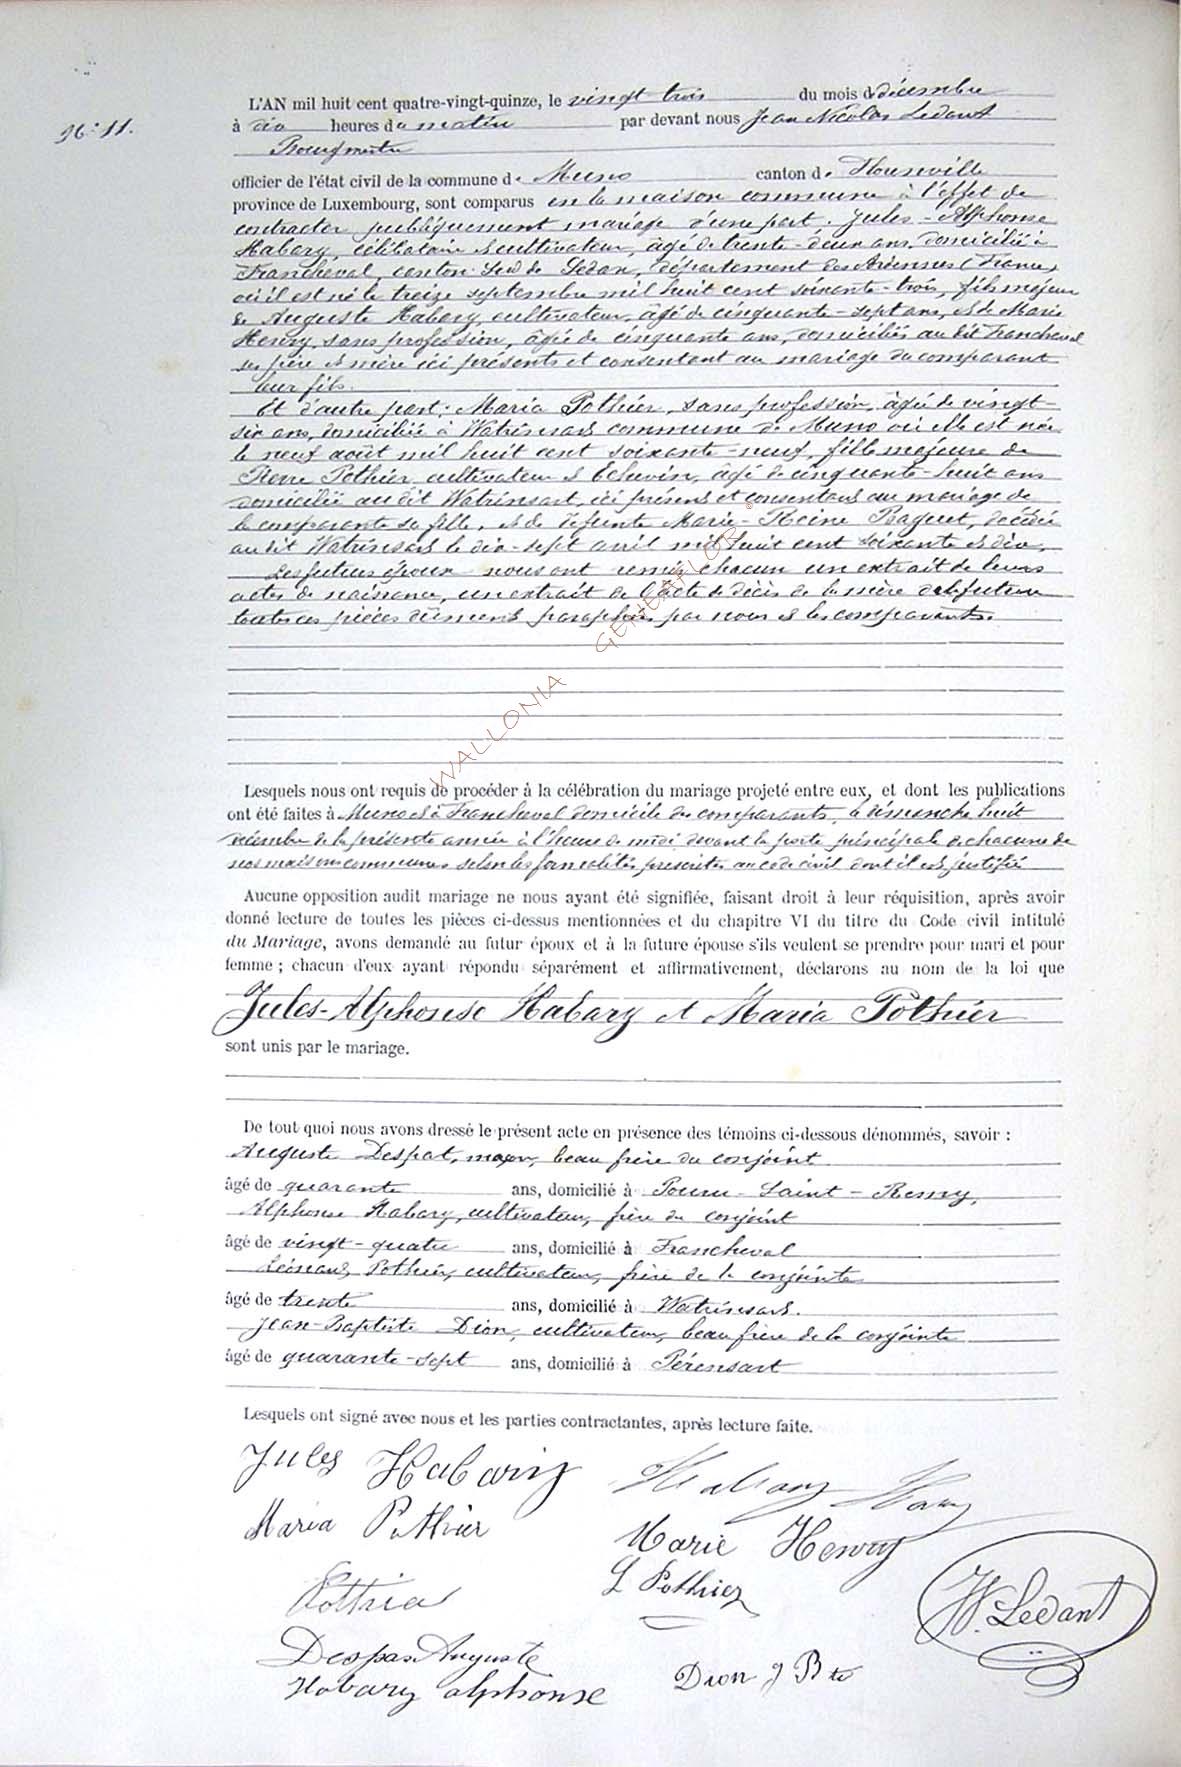 N° 11.
L'AN mil huit cent quatre-vingt-quinze, le vingt trois du mois de décembre
à dix heures du matin par devant nous Jean Nicolas Ledant
Bourgmestre
officier de l'état civil de la commune de Muno canton de Florenville
province de Luxembourg, sont comparus en la maison commune à l'effet de
contracter publiquement mariage d'une part. Jules-Alphonse
Habary, célibataire et cultivateur, âgé de trente-deux ans, domicilié à
Francheval, canton Sud de Sedan, département des Ardennes (France)
où il est né le treize septembre mil huit cent soixante-trois, fils majeur
de Auguste Habary, cultivateur, âgé de cinquante-sept ans, et de Marie
Henry, sans profession, âgée de cinquante ans, domiciliés au dit Francheval
ses père et mère ici présents et consentant au mariage du comparant
leur fils.
Et d'autre part: Maria Pothier, sans profession, âgée de vingt-
six ans, domiciliée à Watrinsart commune de Muno où elle est née
le neuf août mil huit cent soixante-neuf, fille majeure de
Pierre Pothier cultivateur et Echevin, âgé de cinquante-huit ans
domicilié au dit Watrinsart, ici présent et consentant au mariage de
la comparante sa fille, et de défunte Marie-Reine Baquet, décédée
au dit Watrinsart le dix-sept avril mil huit cent soixante et dix.
Les futurs époux nous ont remis chacun un extrait de leurs
actes de naissance, un extrait de l'acte de décès de la mère de la future
toutes ces pièces dûment paraphées par nous et les comparants.
WALLONIA GENEAFLOR ©
Lesquels nous ont requis de procéder à la célébration du mariage projeté entre eux, et dont les publications
ont été faites à Muno et à Francheval domicile des comparants, le dimanche huit
décembre de la présente année à l'heure de midi devant la porte principale de chacune de
nos maisons communes selon les formalités prescrites au code civil dont il est justifié
Aucune opposition audit mariage ne nous ayant été signifiée, faisant droit à leur réquisition, après avoir
donné lecture de toutes les pièces ci-dessus mentionnées et du chapitre VI du titre du Code civil intitulé
du Mariage, avons demandé au futur époux et à la future épouse s'ils veulent se prendre pour mari et pour
femme ; chacun d'eux ayant répondu séparément et affirmativement, déclarons au nom de la loi que
Jules-Alphonse Habary et Maria Pothier
sont unis par le mariage.
De tout quoi nous avons dressé le présent acte en présence des témoins ci-dessous dénommés, savoir :
Auguste Despat, maçon, beau frère du conjoint
âgé de quarante ans, domicilié à Pouru-Saint-Remy,
Alphonse Habary, cultivateur, frère du conjoint
âgé de vingt-quatre ans, domicilié à Francheval
Léonard Pothier, cultivateur, frère de la conjointe
âgé de trente ans, domicilié à Watrinsart.
Jean-Baptiste Dion, cultivateur, beau frère de la conjointe
âgé de quarante-sept ans, domicilié à Pérensart
Lesquels ont signé avec nous et les parties contractantes, après lecture faite.
Jules Habary Habary
Maria Pothier Marie Henry
Pothier L Pothier
N. Ledant
Despas Auguste
Habary alphonse Dion J Bte